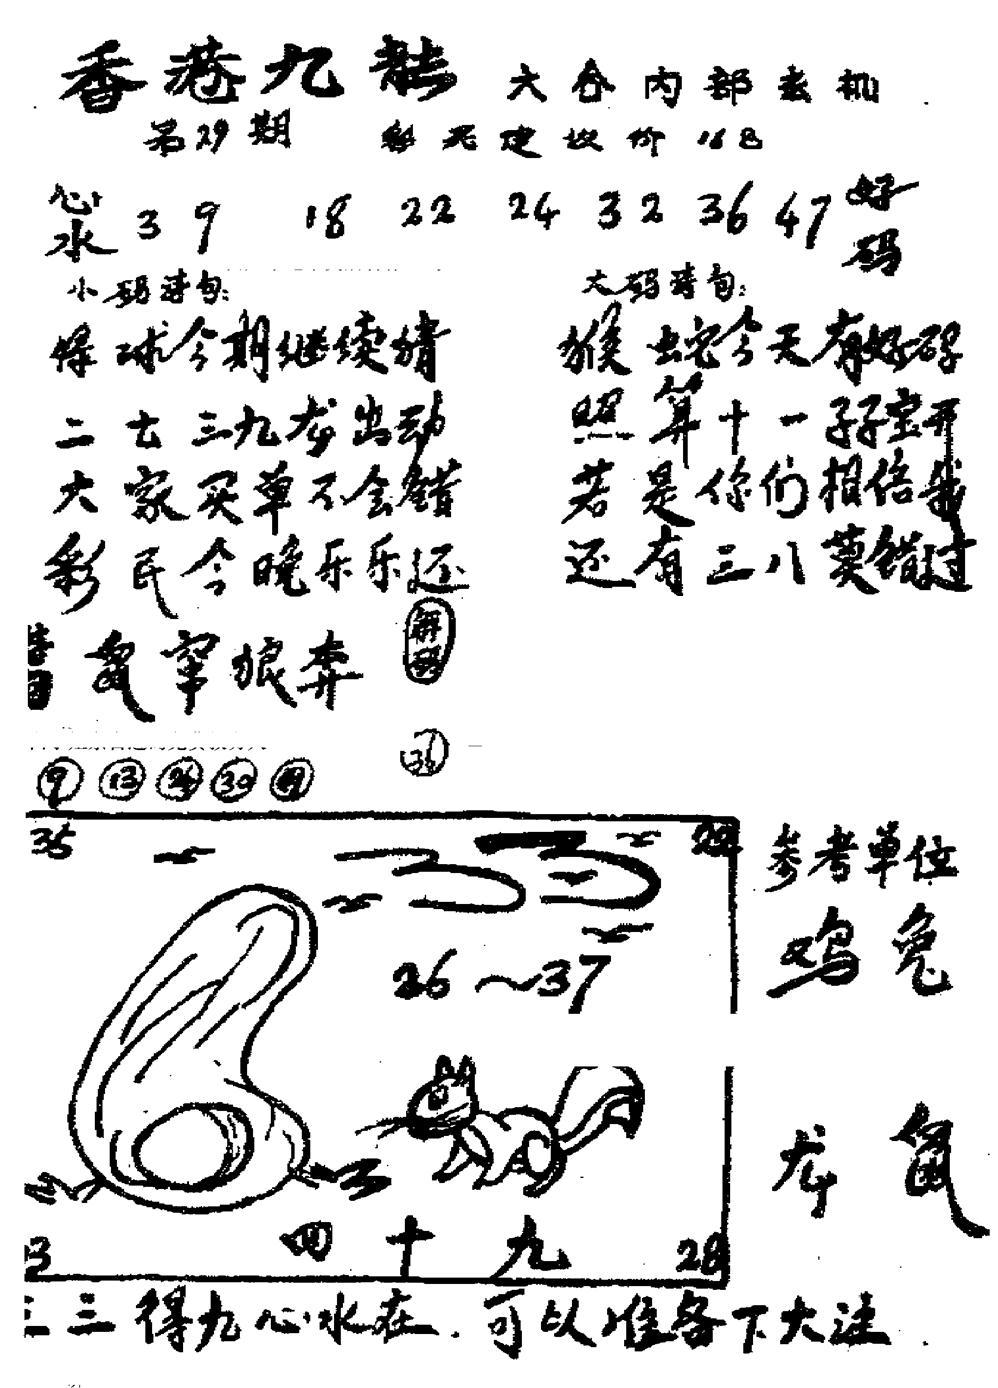 香港九龍 六合内部玄机
第29期 彩民建议价168
心水 3 9 18 22 24 32 36 47 好码
小码诗句: 大码诗句:
绿球今期继续猜 猴蛇今天有好码
二七三九龙出动 照算十一子子宝开
大家买单不会错 若是你们相信我
彩民今晚乐乐还 还有三八莫错过
鼠窜狼奔 解码
36
9 13 26 30
35
26~37
四十九
28
参考单位
鸡兔
龙鼠
三三得九心水在.可以准备下大注.